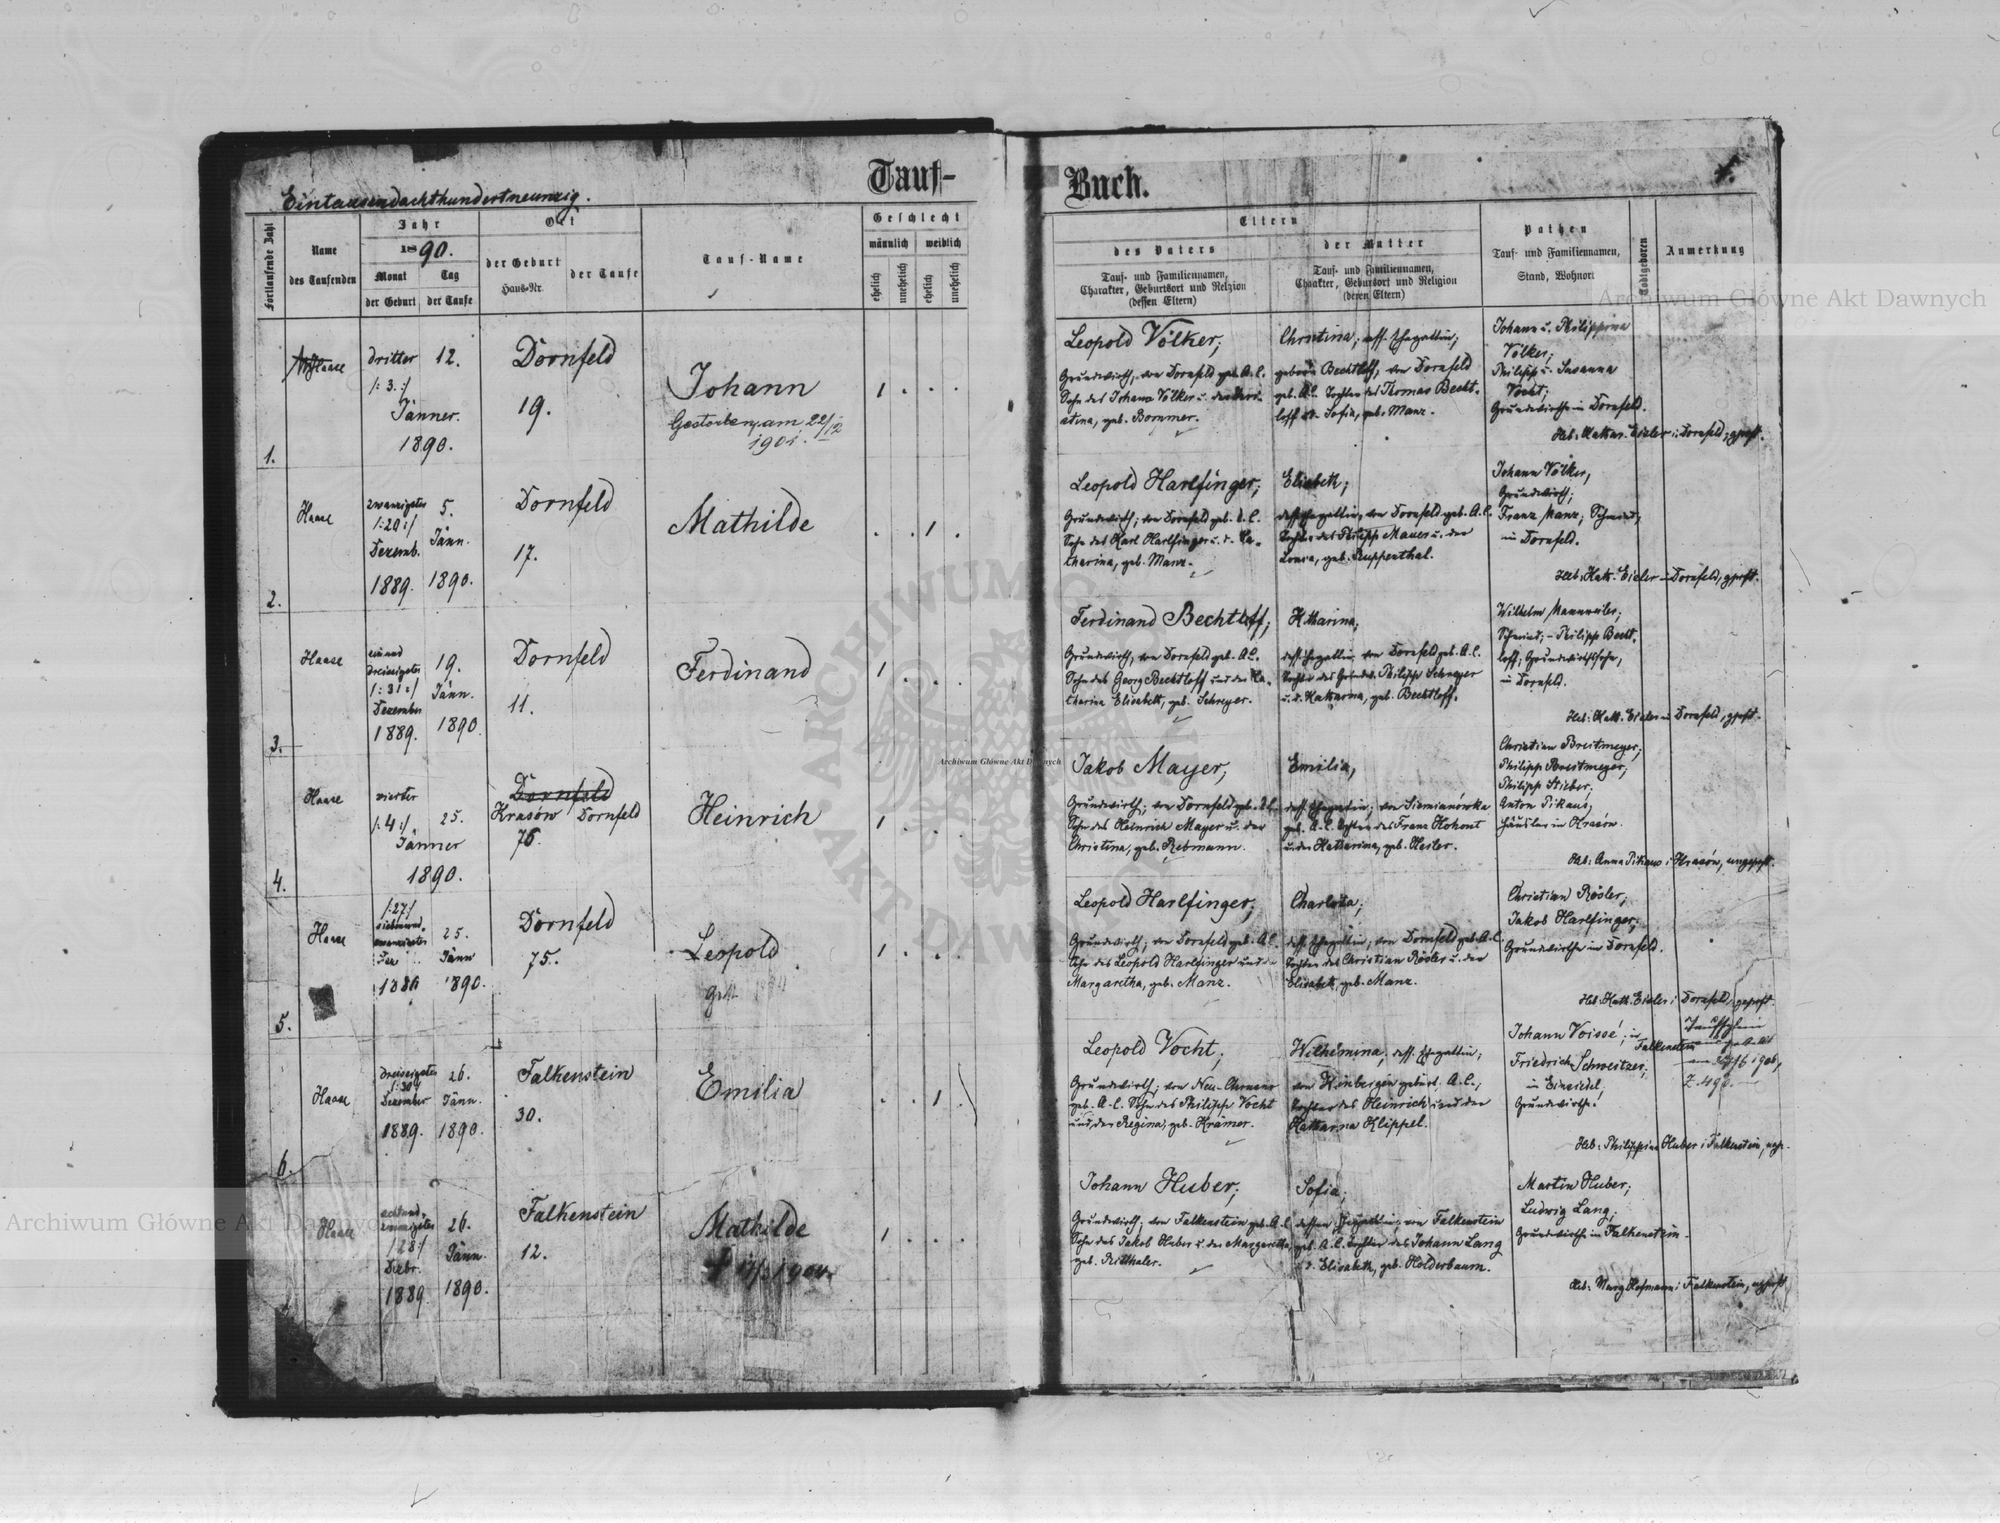 Tauf-
Buch.
Eintausendachthundertneunzig.
Fortlaufende Zahl
Name
des Taufenden
Jahr
1890.
Monat
der Geburt
Tag
der Taufe
Ort
der Geburt
Haus-Nr.
der Taufe
Tauf-Name
Geschlecht
männlich
weiblich
ehelich
unehelich
ehelich
unehelich
Eltern
des Vaters
Tauf- und Familiennamen,
Charakter, Geburtsort und Religion
(dessen Eltern)
der Mutter
Tauf- und Familiennamen,
Charakter, Geburtsort und Religion
(deren Eltern)
Pathen
Tauf- und Familiennamen,
Stand, Wohnort
Todtgeboren
Anmerkung
1.
Haase
dritter
/: 3. :/
Jänner.
1890.
12.
Dornfeld
19.
Johann
Gestorben am 22/12
1 . . .
Leopold Völker;
Grundwirth, von Dornfeld geb. A.C.
Sohn des Johann Völker u. der
geb. Bommer.
Christina, dess. Ehegattin;
geborn Bechtloff, von Dornfeld
geb. A.C. Tochter des Thomas Becht-
loff u. Sofia, geb. Manz.
Johann u. Philippina
Völker;
Philipp u. Susanna
Vocht;
Grundwirthe in Dornfeld.
Heb: Kathar. Eisler i. Dornfeld, geprft.
2.
Haase
zwanzigster
/:20:/
Dezemb.
1889.
5.
Jänn.
1890.
Dornfeld
17.
Mathilde
. . 1 .
Leopold Harlfinger;
Grundwirth; von Dornfeld geb. A.C.
Sohn des Karl Harlfinger u. d. Ca-
tharina, geb. Manz.
Elisabeth;
dess. Ehegattin, von Dornfeld geb. A.C.
Tochter des Philipp Mauer u. der
Louisa, geb. Ruppenthal.
Johann Völker,
Grundwirth;
Franz Manz, Schmied,
in Dornfeld.
Heb: Kath. Eisler i. Dornfeld, geprft.
3.
Haase
einund
dreissigster
/: 31:/
Dezember
1889.
19.
Jänn.
1890
Dornfeld
11.
Ferdinand
1 . . .
Ferdinand Bechtloff;
Grundwirth, von Dornfeld geb. A.C.
Sohn des Georg Bechtloff und der Ka-
tharina Elisabeth, geb. Schreyer.
Katharina;
dess. Ehegattin, von Dornfeld geb. A.C.
Tochter des Philipp Schreyer
u. d. Katharina, geb. Bechtloff.
Wilhelm Mannweiler;
Schmied; - Philipp Becht-
loff; Grundwirthssohn,
in Dornfeld.
Heb: Kath. Eisler in Dornfeld, geprft.
4.
Haase
vierter
/: 4:/
Jänner
1890.
25.
Dornfeld
Krasów Dornfeld
76.
Heinrich
1 . . .
Jakob Mayer;
Grundwirth; von Dornfeld geb. A.C.
Sohn des Heinrich Mayer u. der
Christina, geb. Rebmann.
Emilia,
dess. Ehegattin; von Siemianówka
geb. A.C. Tochter des Franz Kohout
u. der Katharina, geb. Hesler.
Christian Breitmeyer;
Philipp Breitmeyer;
Philipp Stieber;
Anton Pikaus;
Häusler in Krasów.
Heb: Anna Pikaus i. Krasów, ungeprft.
5.
Haase
/:27:/
siebenund-
zwanzigster
25.
Jänn
1890.
Dornfeld
75.
Leopold
1 . . .
Leopold Harlfinger;
Grundwirth; von Dornfeld geb. A.C.
Sohn des Leopold Harlfinger und
Margaretha, geb. Manz.
Charlota;
dess. Ehegattin; von Dornfeld geb. A.C.
Tochter des Christian Rösler u. der
Elisabeth, geb. Manz.
Christian Rösler;
Jakob Harlfinger;
Grundwirthe in Dornfeld.
Heb: Kath. Eisler i. Dornfeld, geprft.
6.
Haase
dreissigster
/:30:/
Dezember
1889.
26.
Jänn.
1890.
Falkenstein
30.
Emilia
. . 1 .
Leopold Vocht;
Grundwirth;
geb. A.C. Sohn des Philipp Vocht
und der Regina, geb. Krämer.
Wilhelmina, dess. Ehegattin;
Tochter des Heinrich und der
Katharina Klippel.
Johann Voissé; in
Falkenstein
Friedrich Schweitzer;
in Einsiedel;
Grundwirthe.
Heb: Philippina Huber i. Falkenstein,
Haase
achtund-
zwanzigster
/28:/
Dzbr.
1889.
26.
Jänn.
1890.
Falkenstein
12.
Mathilde
1 . . .
Johann Huber;
Grundwirth; von Falkenstein geb. A.C.
Sohn des Jakob Huber u. der Margaretha,
geb. Ritthaler.
Sofia;
dessen Ehegattin; von Falkenstein
geb. A.C. Tochter des Johann Lang
u. Elisabeth, geb. Holderbaum.
Martin Huber;
Ludwig Lang;
Grundwirthe in Falkenstein.
Heb: Marg. Hofmann i. Falkenstein,
Archiwum Główne Akt Dawnych
Archiwum Główne Akt Dawnych
Archiwum Główne Akt Dawnych